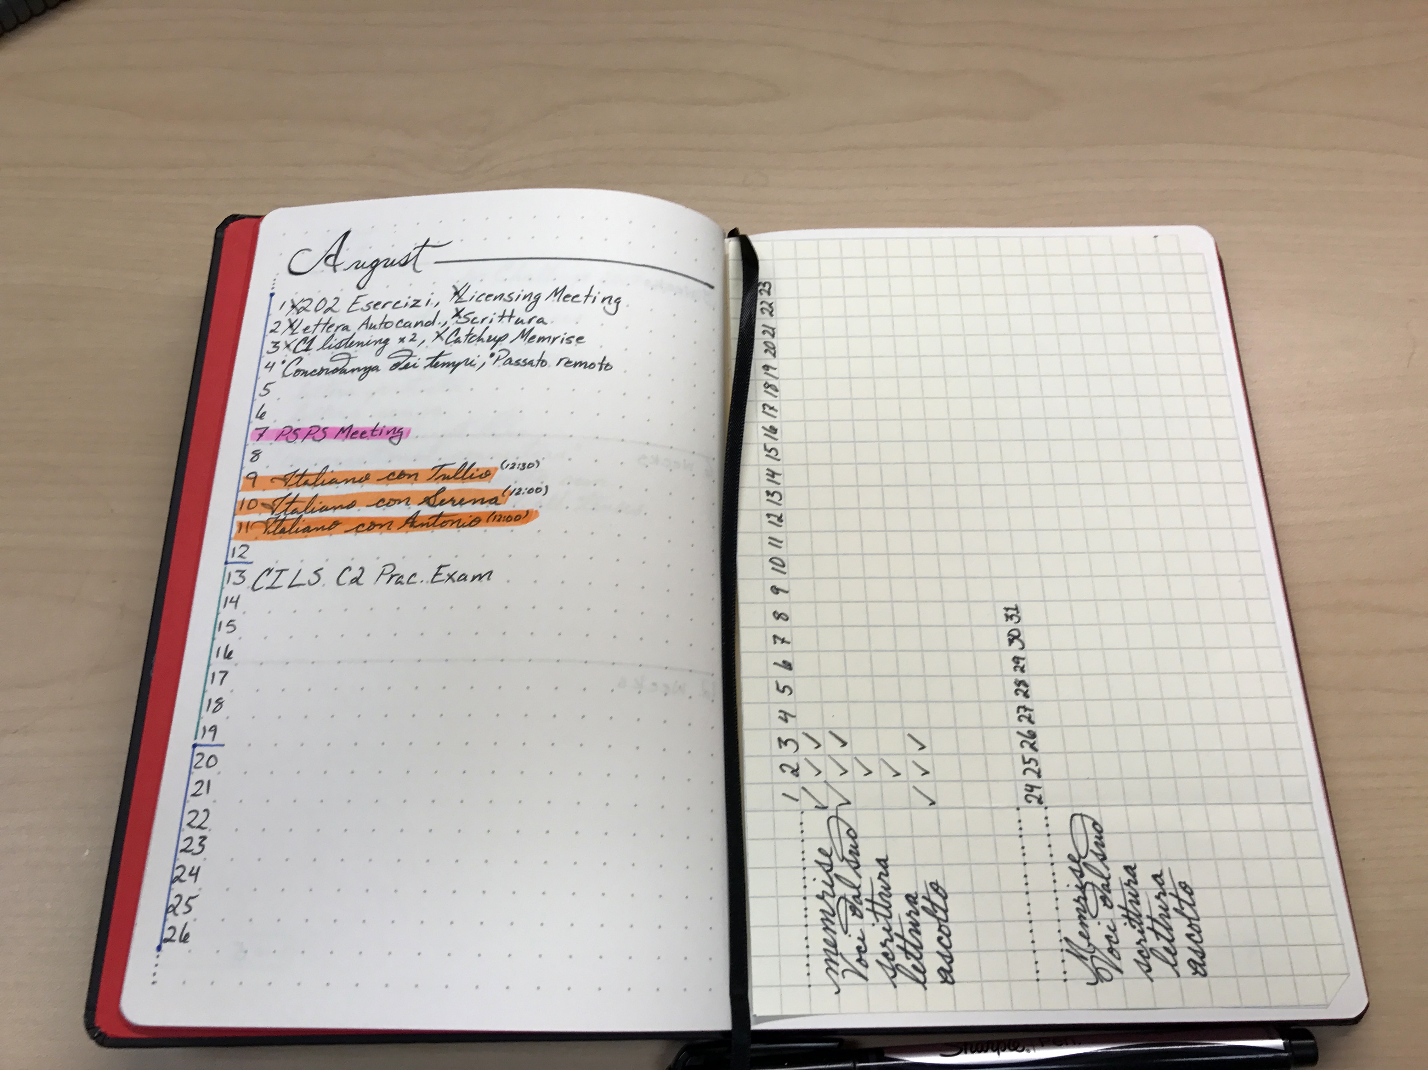 August
1 x202 Esercizi, xLicensing Meeting
2 xLettera Autocand., xScrittura
3 xC1 listening x2, xCatchup Memrise
4 •Concordanza dei tempi, •Passato remoto
5
6
7 PSPS Meeting
8
9 Italiano con Tullio (12:30)
10 Italiano con Serena (12:00)
11 Italiano con Antonio (12:00)
12
13 CILS C2 Prac. Exam
14
15
16
17
18
19
20
21
22
23
24
25
26
1 2 3 4 5 6 7 8 9 10 11 12 13 14 15 16 17 18 19 20 21 22 23
memrise ✓ ✓ ✓
Voci dal sud ✓ ✓ ✓
scrittura ✓
lettura ✓
ascolto ✓ ✓ ✓
24 25 26 27 28 29 30 31
Memrise
Voci dal sud
scrittura
lettura
ascolto
Sharpie. Pen